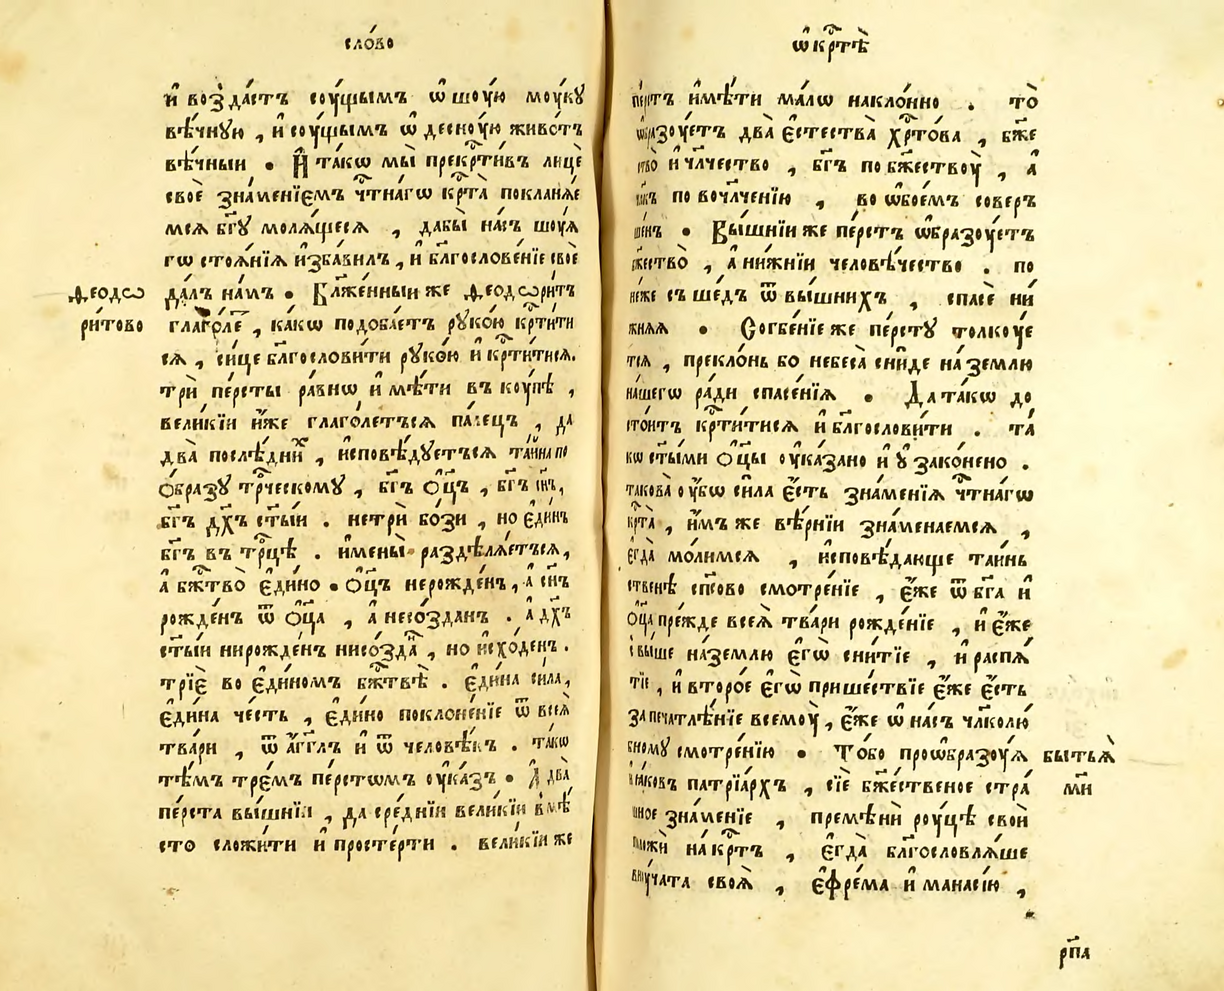 сло́во
и҆ возда́стъ соу́щымъ ѡ҆ шоу́ю моу́ку
вѣ́чную , и҆ соу́щымъ ѡ҆ десноу́ю живо́тъ
вѣ́чныи • И҆ та́кѡ мы̀ прекр҇ти́въ лицѐ
своѐ зна́менїемъ ч҇тна́гѡ кр҇та̀ покланѧ́е
мсѧ бг҃у молѧ́щесѧ , дабы̀ на́съ шоу́ѧ
гѡ стоѧ́нїѧ и҆зба́вилъ , и҆ бл҃гослове́нїе своѐ
Ѳеодѡ
да́лъ на́мъ • Бл҃же́нныи же Ѳеодѡри́тъ
ри́тово
глаго́ле , ка́кѡ подоба́етъ руко́ю кр҇ти́ти
сѧ , си́це бл҃гослови́ти руко́ю и҆ кр҇ти́тисѧ.
трѝ пе́рсты ра́внѡ и҆мѣ́ти въ коу́пѣ ,
вели́кїи и҆́же глаго́летъсѧ па́лецъ , да
два̀ послѣ́дних , и҆сповѣ́дуетъсѧ та́ина по
о҆́бразу тр҇ческому , бг҃ъ ѻ҆ц҃ъ , бг҃ъ сн҃ъ ,
бг҃ъ дх҃ъ ст҃ы́и . не трѝ бо́зи , но є҆ди́нъ
бг҃ъ въ тр҇цѣ . и҆мены̀ раздѣлѧ́етъсѧ ,
а҆ бж҇тво̀ є҆ди́но • ѻ҆ц҃ъ нерожде́н , а҆ сн҃ъ
рожде́нъ ѿ ѻ҆ц҃а , а҆ несо́зданъ . а҆ дх҃ъ
ст҃ы́и нирожде́нъ нисо́зда , но исхо́денъ .
трїѐ во є҆ди́номъ бж҇твѣ̀ . є҆ди́на си́ла ,
є҆ди́на че́сть , є҆ди́но поклоне́нїе ѿ всеѧ̀
тва́ри , ѿ а҆́гг҃лъ и҆ ѿ человѣ́къ . та́кѡ
тѣ́мъ тре́мъ персто́мъ оу҆ка́зъ • А҆ два̀
пе́рста вы́шнїи , да сре́днїи вели́кїи вмѣ́
сто сложи́ти и҆ просте́рти . вели́кїи же
ѡ҆ кр҇тѣ̀
пе́рстъ и҆мѣ́ти ма́лѡ накло́нно . то̀
ѡ҆бразоу́етъ два̀ є҆стества̀ хр҇то́ва , бж҃е
ство̀ и҆ чл҃чество , бг҃ъ по бж҃ествоу̀ , а҆
по вочл҃че́нїю , во ѡ҆бое́мъ соверъ
ше́нъ • Вы́шнїи же пе́рстъ ѡ҆бразоу́етъ
бж҃ество̀ , а҆ ни́жнїи человѣ́чество . по
неже съше́дъ ѿ вы́шнихъ , спасѐ ни
жняѧ • Согбе́нїе же пе́рсту толкоу́е
тсѧ , прекло́нь бо небеса̀ сни́де на́ землю
на́шегѡ ра́ди спасе́нїѧ • Да та́кѡ до
сто́итъ кр҇ти́тисѧ и҆ бл҃гослови́ти . та́
кѡ ст҃ы́ми ѻ҆ц҃ы оу҆ка́зано и҆ у҆зако́нено .
такова̀ оу҆́бѡ си́ла є҆́сть зна́менїѧ ч҇тна́гѡ
кр҇та̀ , и҆́мъ же вѣ́рнїи зна́менаемсѧ ,
є҆гда̀ мо́лимсѧ , и҆сповѣ́дающе та́инь
ственѣ сп҃сово смотре́нїе , є҆́же ѿ бг҃а и҆
ѻ҆ц҃а пре́жде всеѧ̀ тва́ри рожде́нїе , и҆ є҆́же
свы́ше на́ землю є҆гѡ̀ сни́тїе , и҆ распѧ́
тїе , и҆ второ́е є҆гѡ̀ прише́ствїе є҆́же є҆́сть
запечатлѣ́нїе всемоу̀ , є҆́же ѡ҆ на́съ чл҃колю́
бному смотре́нїю • То́бо проѡ҆бразоу́ѧ
бытьѧ̀
ми
и҆а́ковъ патрїа́рхъ , сїѐ бж҃ественое стра́
шное зна́менїе , премѣнѝ роу́цѣ своѝ
на кр҇тъ , є҆гда̀ бл҃гословлѧ́ше
вноу́чата своѧ̀ , є҆фре́ма и҆ манасі́ю ,
рп҃а